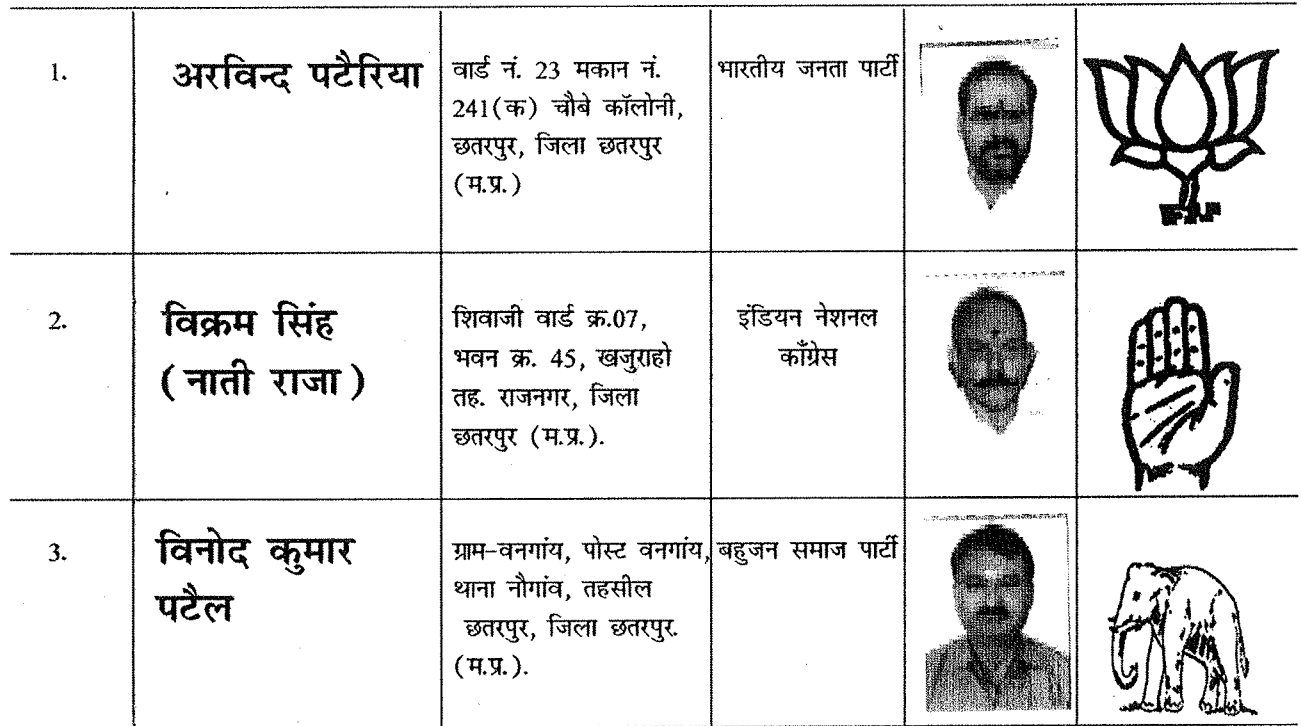 1.
अरविन्द पटैरिया
वार्ड नं. 23 मकान नं.
241(क) चौबे कॉलोनी,
छतरपुर, जिला छतरपुर
(म.प्र.)
भारतीय जनता पार्टी
2.
विक्रम सिंह
(नाती राजा)
शिवाजी वार्ड क्र.07,
भवन क्र. 45, खजुराहो
तह. राजनगर, जिला
छतरपुर (म.प्र.).
इंडियन नेशनल
काँग्रेस
3.
विनोद कुमार
पटैल
ग्राम-वनगांय, पोस्ट वनगांय,
थाना नौगांव, तहसील
छतरपुर, जिला छतरपुर.
(म.प्र.).
बहुजन समाज पार्टी